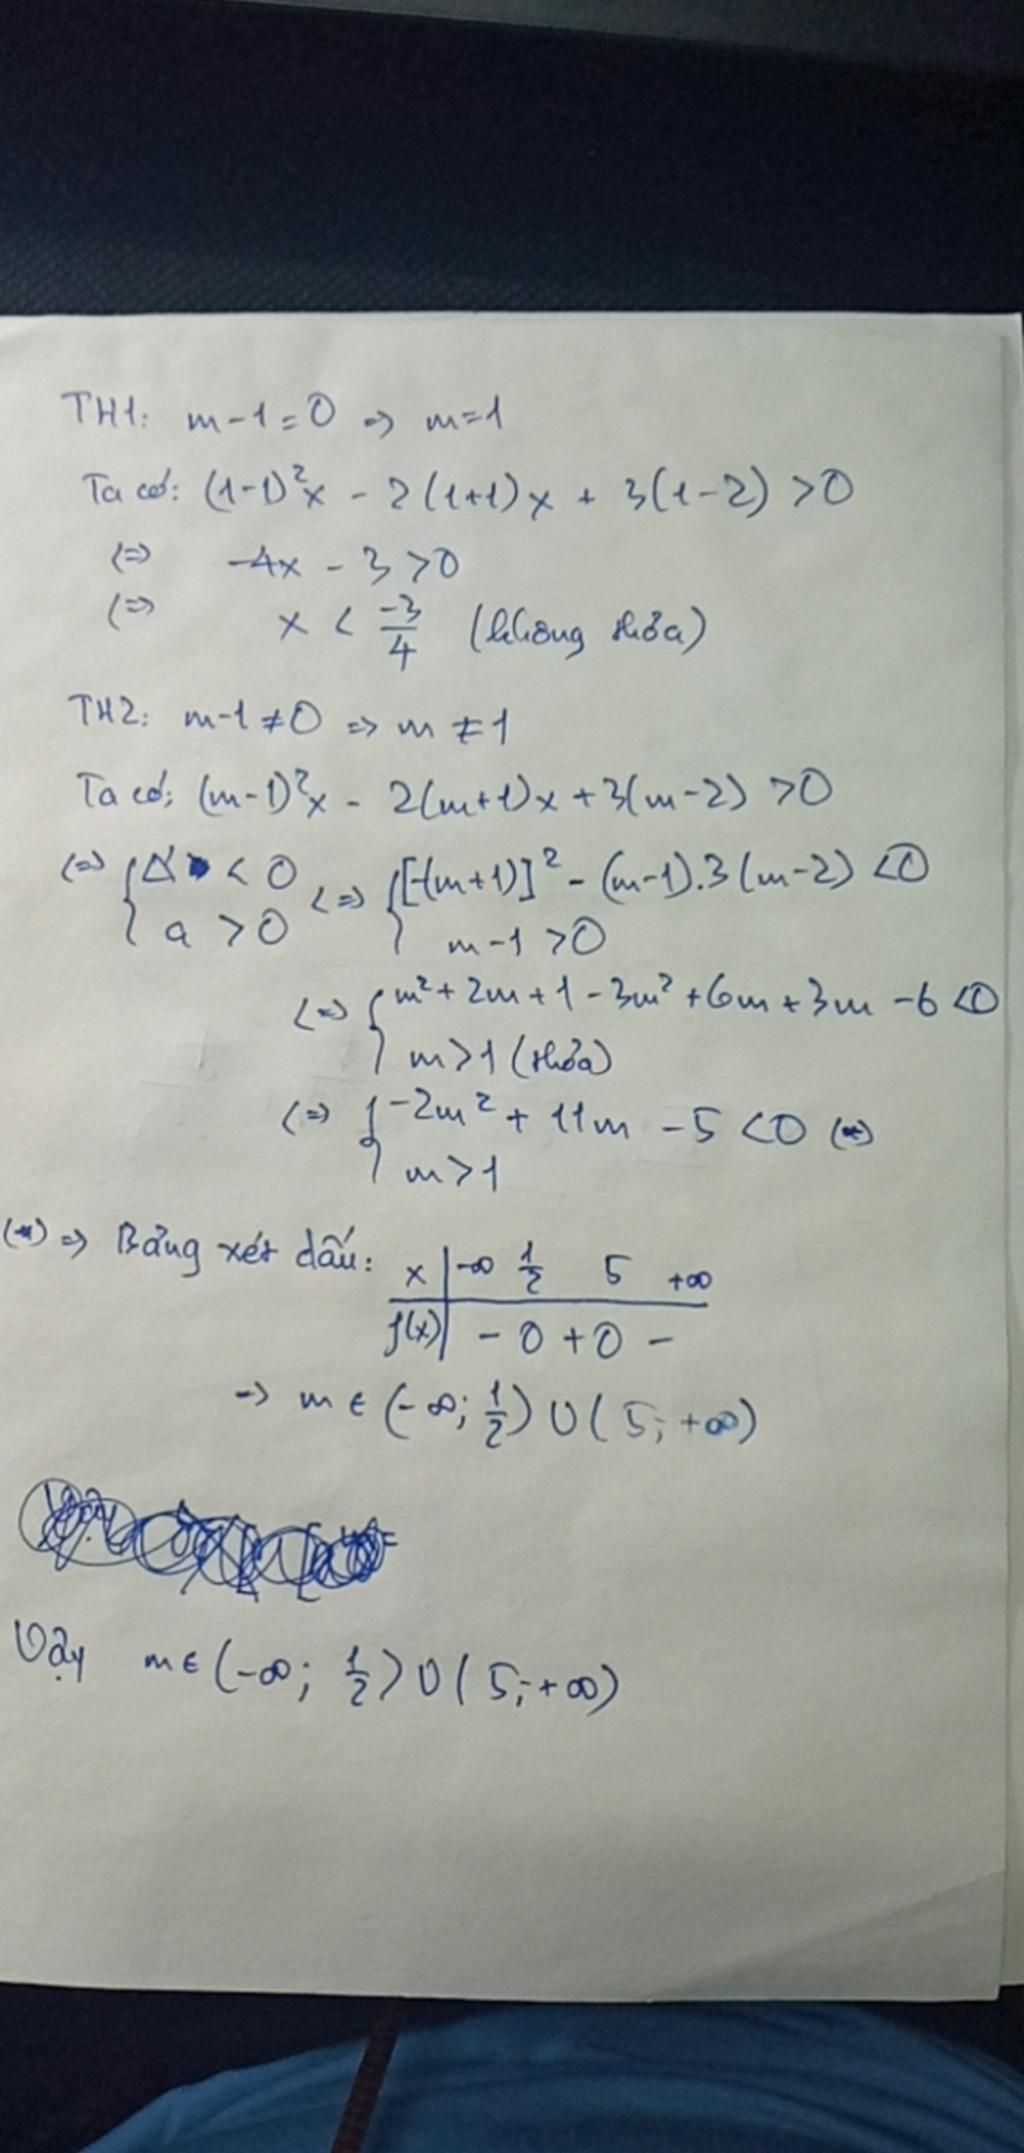 TH1: m-1=0 => m=1
Ta có: (1-1)²x - 2(1+1)x + 3(1-2) >0
(=> -4x - 3 >0
(=> x < -3/4 (không thỏa)
TH2: m-1≠0 => m ≠ 1
Ta có: (m-1)²x - 2(m+1)x + 3(m-2) >0
(=> { Δ' < 0 (=> { [-(m+1)]² - (m-1).3(m-2) <0
a > 0 m-1 >0
(=> { m² + 2m + 1 - 3m² + 6m + 3m - 6 <0
m >1 (thỏa)
(=> { -2m² + 11m - 5 <0 (*)
m >1
(*) => Bảng xét dấu: x | -∞ 1/2 5 +∞
f(x) | - 0 + 0 -
=> m ∈ (-∞; 1/2) ∪ (5; +∞)
Vậy m ∈ (-∞; 1/2) ∪ (5; +∞)